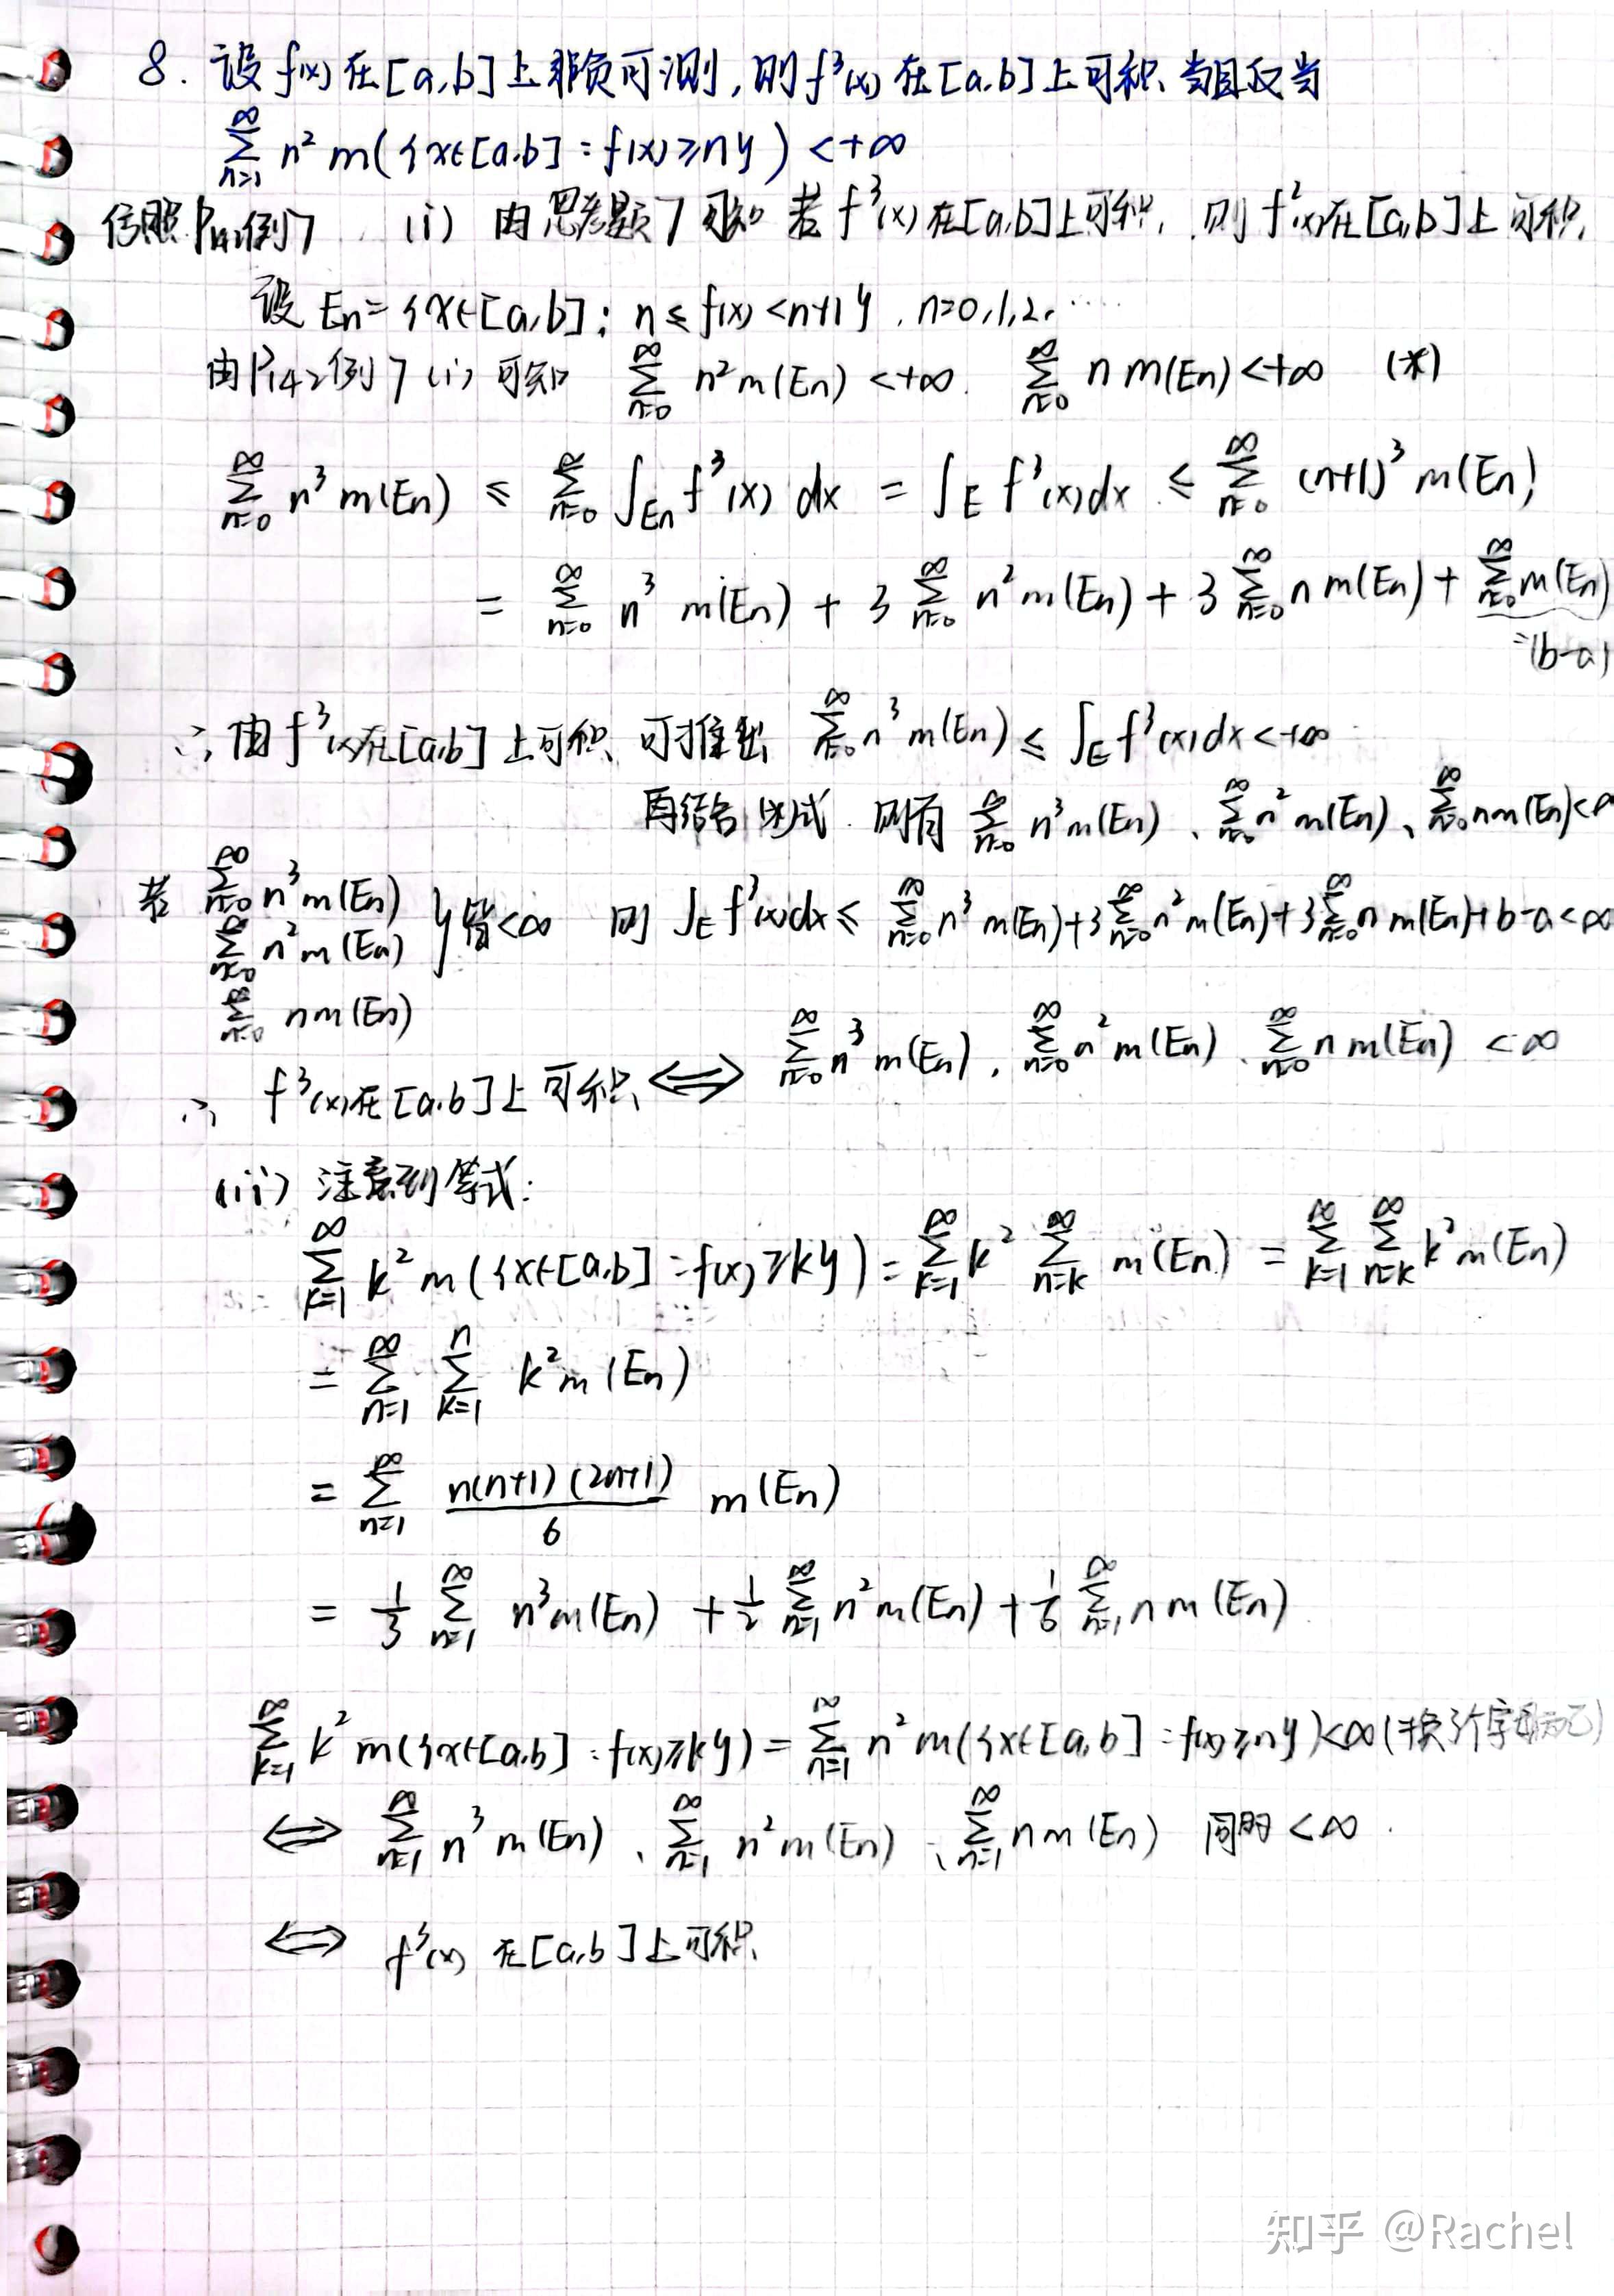 8. 设f(x)在[a,b]上非负可测,则f³(x)在[a,b]上可积当且仅当
∑_{n=1}^{∞} n² m({x∈[a,b]: f(x)≥n}) <+∞
仿照P142例7 (i) 由思考题7可知 若f³(x)在[a,b]上可积, 则f²(x)在[a,b]上可积,
设 En={x∈[a,b]: n≤f(x)<n+1}, n=0,1,2,……
由P142例7(i)可知 ∑_{n=0}^{∞} n²m(En)<+∞. ∑_{n=0}^{∞} n m(En)<+∞ (*)
∑_{n=0}^{∞} n³m(En) ≤ ∑_{n=0}^{∞} ∫_{En} f³(x)dx = ∫_E f³(x)dx ≤ ∑_{n=0}^{∞} (n+1)³m(En)
= ∑_{n=0}^{∞} n³ m(En) + 3∑_{n=0}^{∞} n²m(En) + 3∑_{n=0}^{∞} n m(En) + ∑_{n=0}^{∞} m(En)
=(b-a)
∴由f³(x)在[a,b]上可积 可推出 ∑_{n=0}^{∞} n³m(En) ≤ ∫_E f³(x)dx<+∞
再结合 式. 则有 ∑_{n=0}^{∞} n³m(En)、∑_{n=0}^{∞} n²m(En)、∑_{n=0}^{∞} nm(En)<∞
若 ∑_{n=0}^{∞} n³m(En)
∑_{n=0}^{∞} n²m(En) }皆<∞ 则 ∫_E f³(x)dx ≤ ∑_{n=0}^{∞} n³m(En)+3∑_{n=0}^{∞} n²m(En)+3∑_{n=0}^{∞} n m(En)+b-a<∞
∑_{n=0}^{∞} nm(En)
∴ f³(x)在[a,b]上可积 ⟺ ∑_{n=0}^{∞} n³m(En), ∑_{n=0}^{∞} n²m(En)、∑_{n=0}^{∞} n m(En) <∞
(ii) 注意到等式:
∑_{k=1}^{∞} k² m({x∈[a,b]: f(x)≥k}) = ∑_{k=1}^{∞} k² ∑_{n=k}^{∞} m(En) = ∑_{k=1}^{∞} ∑_{n=k}^{∞} k²m(En)
= ∑_{n=1}^{∞} ∑_{k=1}^{n} k²m(En)
= ∑_{n=1}^{∞} n(n+1)(2n+1)/6 m(En)
= 1/3 ∑_{n=1}^{∞} n³m(En) + 1/2 ∑_{n=1}^{∞} n²m(En) + 1/6 ∑_{n=1}^{∞} n m(En)
∑_{k=1}^{∞} k² m({x∈[a,b]: f(x)≥k}) = ∑_{n=1}^{∞} n² m({x∈[a,b]: f(x)≥n})<∞ (换了个字母而已)
⟺ ∑_{n=1}^{∞} n³m(En)、∑_{n=1}^{∞} n²m(En)、∑_{n=1}^{∞} nm(En) 同时<∞.
⟺ f³(x)在[a,b]上可积.
知乎 @Rachel